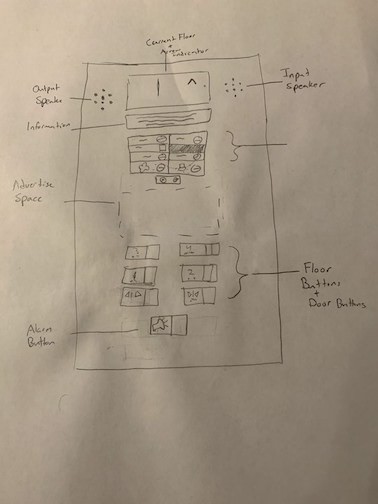 Current Floor
+
Arrow
Indicator
Output
Speaker
Input
Speaker
1 ^
Information
Advertise
Space
3
4
1
2
Floor
Buttons
+
Door Buttons
Alarm
Button